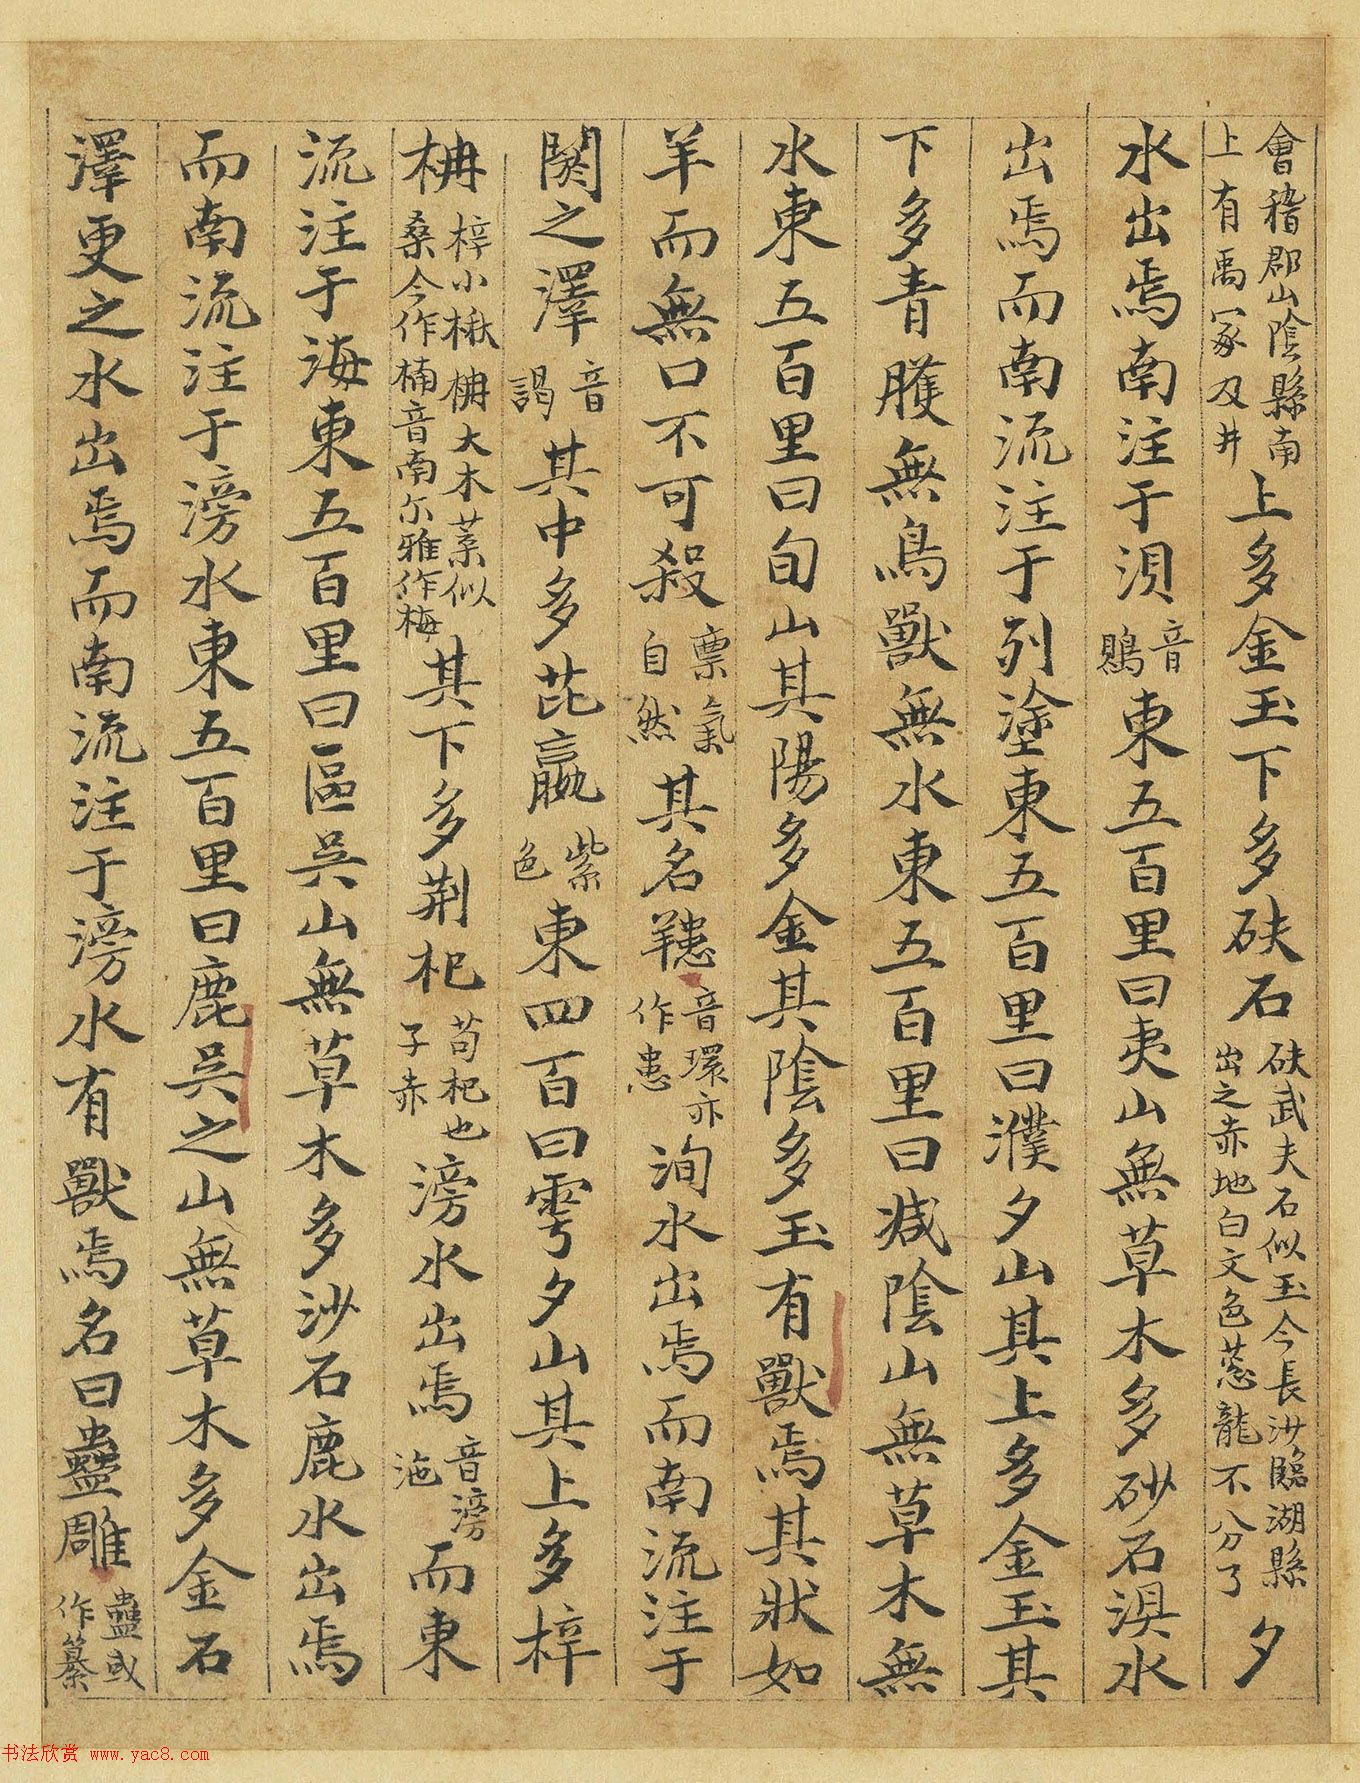 會稽郡山陰縣南上有禹冢及井上多金玉下多砆石砆武夫石似玉今長沙臨湖縣出之赤地白文色蔥龍不分了夕
水出焉南注于湨音鶪東五百里曰夷山無草木多砂石湨水
出焉而南流注于列塗東五百里曰濮夕山其上多金玉其
下多青雘無鳥獸無水東五百里曰減陰山無草木無
水東五百里曰旬山其陽多金其陰多玉有獸焉其狀如
羊而無口不可殺禀氣自然其名䍺音環亦作患洵水出焉而南流注于
閼之澤音謁其中多芘蠃紫色東四百曰雩夕山其上多梓
枏梓小楸枏大木葉似桑今作楠音南尔雅作梅其下多荆杞苟杞也子赤滂水出焉音滂沲而東
流注于海東五百里曰區吳山無草木多沙石鹿水出焉
而南流注于滂水東五百里曰鹿吳之山無草木多金石
澤更之水出焉而南流注于滂水有獸焉名曰蠱雕蠱或作纂
书法欣赏 www.yac8.com